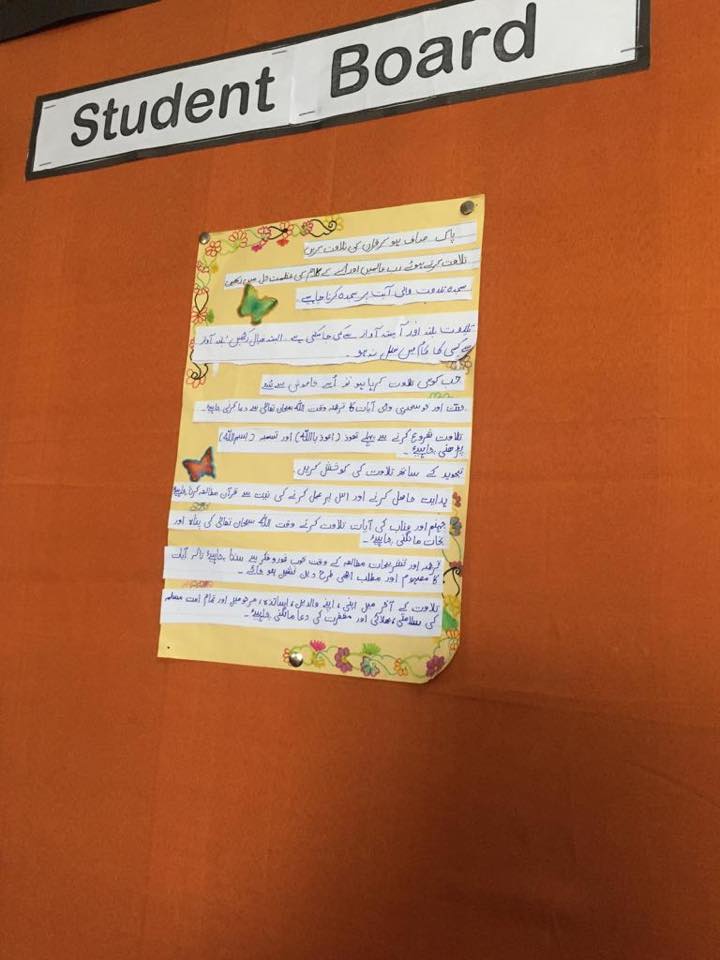 Student Board
پاک صاف ہو کر قرآن کی تلاوت کریں
تلاوت کرتے ہوئے رب عالمین اور اے کے کلام کی عظمت دل میں رکھیں
سجدہ تلاوت والی آیت پر سجدہ کرنا چاہیے
تلاوت بلند اور آہستہ آواز سے کی جا سکتی ہے۔ البتہ خیال رکھیں بلند آواز
سے کسی کا کام میں خلل نہ ہو۔
جب کوئی تلاوت کر رہا ہو تو اُسے خاموشی سے سُنے
اور خوشخبری والی آیات کا ترجمہ وقت اللہ سبحان تعالیٰ سے دعا کرنی چاہیے۔
تلاوت شروع کرنے سے پہلے تعوذ (اعوذ باللہ) اور تسمیہ (بسم اللہ)
پڑھنی چاہیے۔
تجوید کے ساتھ تلاوت کی کوشش کریں۔
ہدایت حاصل کرنے اور اس پر عمل کرنے کی نیت سے قرآن مطالعہ کرنا چاہیے
جہنم اور عذاب کی آیات تلاوت کرتے وقت اللہ سبحان تعالیٰ کی پناہ اور
نجات مانگنی چاہیے۔
ترجمہ اور تفسیر مطالعہ کے وقت خوب غور و فکر سے سننا چاہیے تاکہ آیات
کا مفہوم اور مطلب اچھی طرح ذہن نشین ہو جائے۔
تلاوت کے آخر میں اپنی، اپنے والدین، اساتذہ، مرحومین اور تمام امت مسلمہ
کی سلامتی، بھلائی اور مغفرت کی دعا مانگنی چاہیے۔